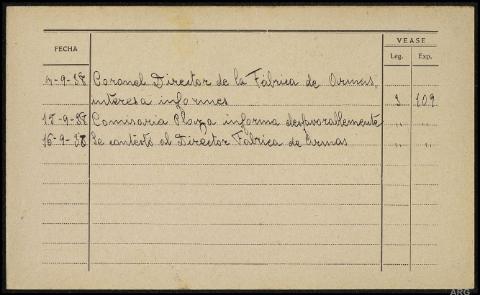 VEASE
FECHA Leg. Exp.
4-9-38 Coronel Director de la Fábrica de Armas,
interesa informes 3 109
15-9-38 Comisaria Plaza informa desfavorablemente " "
16-9-38 Se contestó al Director Fábrica de Armas " "
ARG